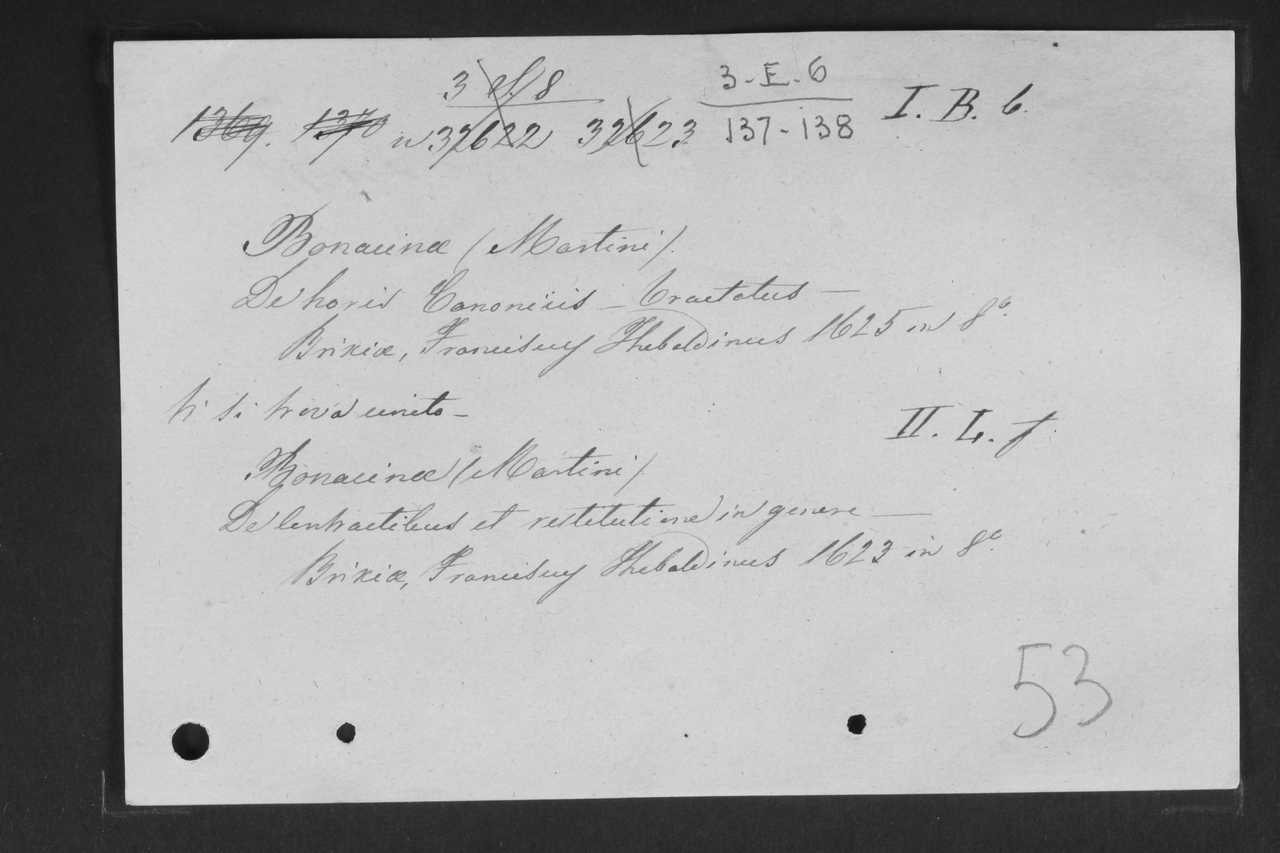 3 8
3-E-6
1369. 1370 n 32622 32623 137-138 I. B. 6.
Bonacinæ (Martini).
De horis Canonicis - Tractatus -
Brixiæ, Franciscus Thebaldinus 1625 in 8º.
Vi si trova unito -
II. L. f.
Bonacinæ (Martini)
De Contractibus et restitutione in genere -
Brixiæ, Franciscus Thebaldinus 1623 in 8º.
53